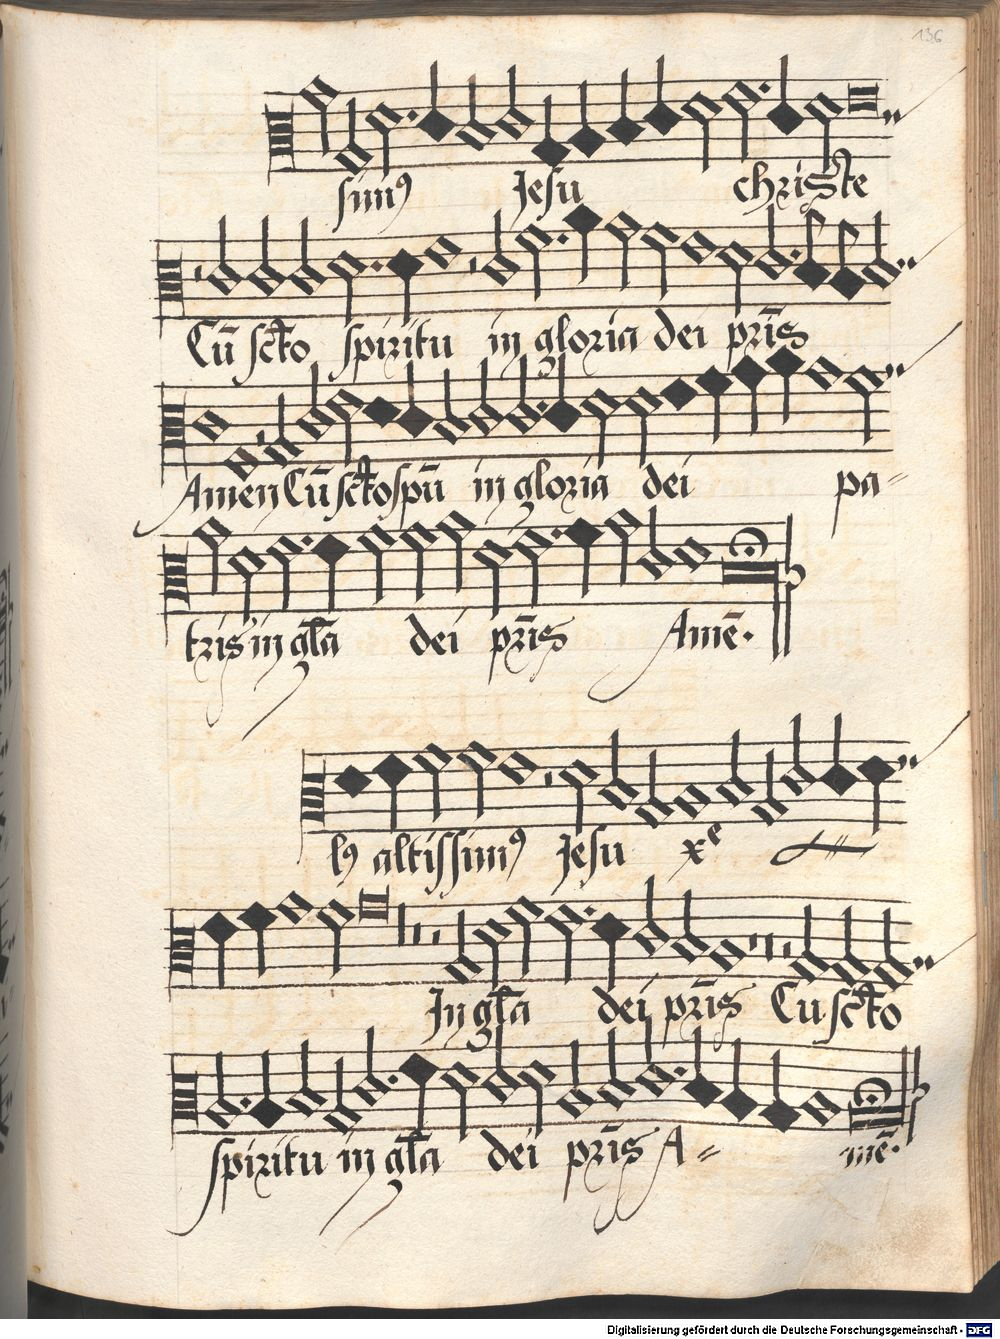 136
simꝰ Jesu christe
Cū sc̄to spiritu in gloria dei pr̄is
Amen Cū sc̄to spū in gloria dei pa=
tris in gl̄a dei pr̄is Amē.
lꝰ altissimꝰ Jesu xᵉ
In gl̄a dei pr̄is Cu sc̄to
spiritu in gl̄a dei pr̄is A= mē.
Digitalisierung gefördert durch die Deutsche Forschungsgemeinschaft - DFG